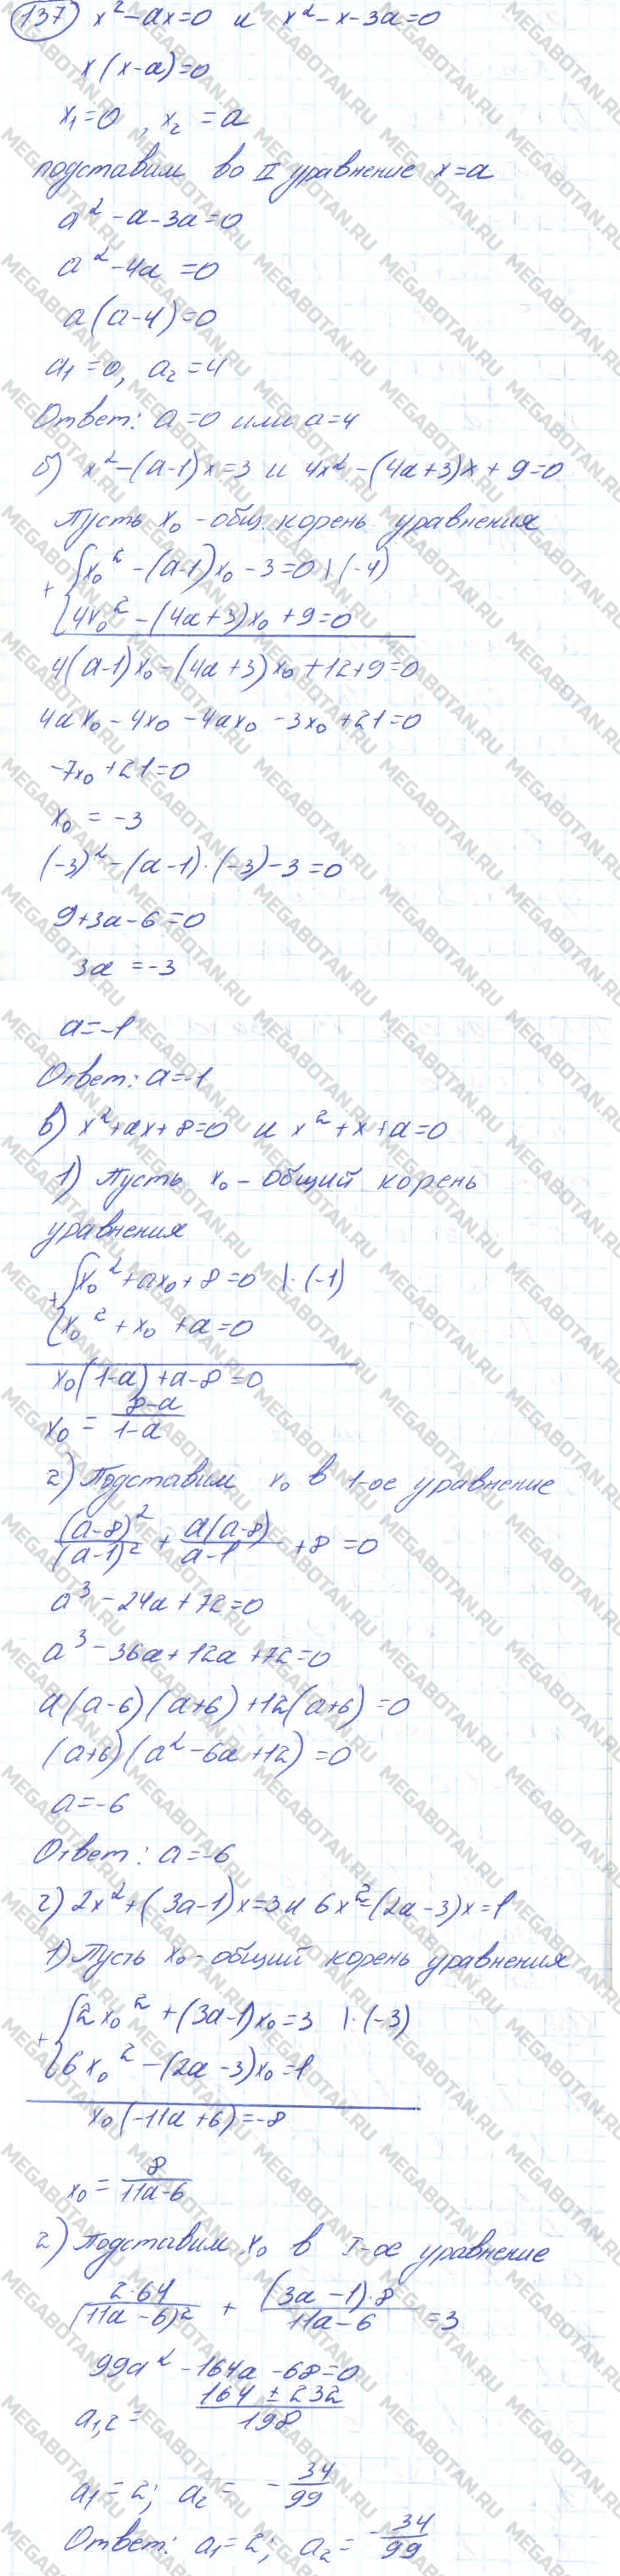 137 x² - ax = 0 и x² - x - 3a = 0
x(x-a) = 0
x₁ = 0, x₂ = a
подставим во II уравнение x = a
a² - a - 3a = 0
a² - 4a = 0
a(a-4) = 0
a₁ = 0, a₂ = 4
Ответ: a = 0 или a = 4
б) x² - (a-1)x = 3 и 4x² - (4a+3)x + 9 = 0
Пусть x₀ - общ. корень уравнения
+ { x₀² - (a-1)x₀ - 3 = 0 | (-4)
{ 4x₀² - (4a+3)x₀ + 9 = 0
4(a-1)x₀ - (4a+3)x₀ + 12 + 9 = 0
4ax₀ - 4x₀ - 4ax₀ - 3x₀ + 21 = 0
-7x₀ + 21 = 0
x₀ = -3
(-3)² - (a-1)·(-3) - 3 = 0
9 + 3a - 6 = 0
3a = -3
a = -1
Ответ: a = -1
в) x² + ax + 8 = 0 и x² + x + a = 0
1) Пусть x₀ - общий корень
уравнения
+ { x₀² + ax₀ + 8 = 0 | · (-1)
{ x₀² + x₀ + a = 0
x₀(1-a) + a - 8 = 0
x₀ = (8-a)/(1-a)
2) Подставим x₀ в 1-ое уравнение
(a-8)²/(a-1)² + a(a-8)/(a-1) + 8 = 0
a³ - 24a + 72 = 0
a³ - 36a + 12a + 72 = 0
a(a-6)(a+6) + 12(a+6) = 0
(a+6)(a² - 6a + 12) = 0
a = -6
Ответ: a = -6
г) 2x² + (3a-1)x = 3 и 6x² - (2a-3)x = 1
1) Пусть x₀ - общий корень уравнения
+ { 2x₀² + (3a-1)x₀ = 3 | · (-3)
{ 6x₀² - (2a-3)x₀ = 1
x₀(-11a+6) = -8
x₀ = 8/(11a-6)
2) Подставим x₀ в I-ое уравнение
2·64/(11a-6)² + (3a-1)·8/(11a-6) = 3
99a² - 164a - 68 = 0
a₁,₂ = (164 ± 232)/198
a₁ = 2; a₂ = -34/99
Ответ: a₁ = 2; a₂ = -34/99
MEGABOTAN.RU